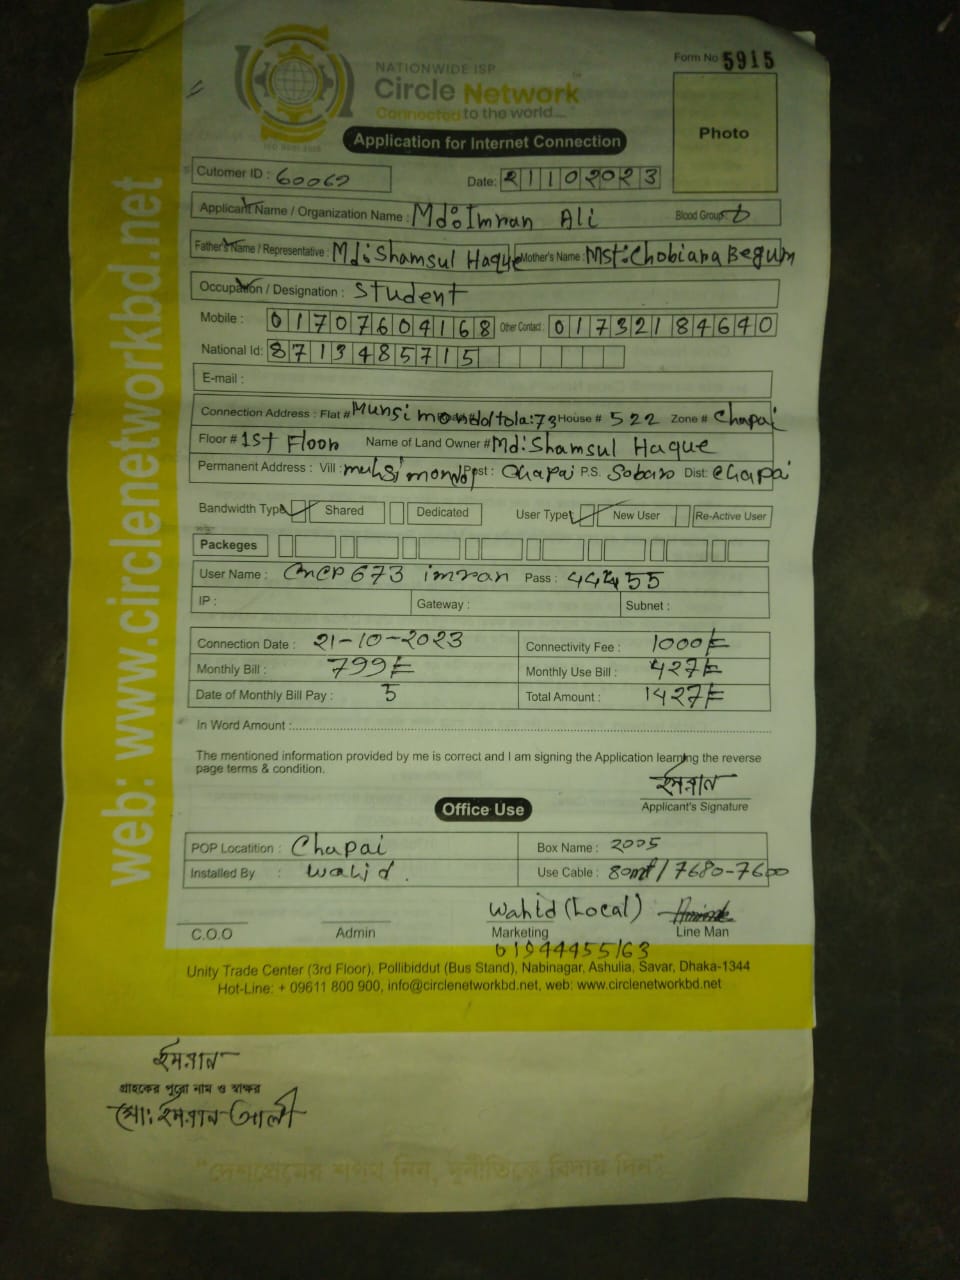 Form No 5915
NATIONWIDE ISP
Circle Network™
Connected to the world....
Application for Internet Connection
Photo
Cutomer ID : 60062
Date: 21102023
Applicant Name / Organization Name : Md: Imran Ali Blood Group
Father's Name / Representative : Md: Shamsul Haque Mother's Name : Mst: Chobiara Begum
Occupation / Designation : Student
Mobile : 01707604168 Other Contact : 01732184640
National Id: 8713485715
E-mail :
Connection Address : Flat # Munsi mondoltola: 73 House # 522 Zone # Chapai
Floor # 1st Floor Name of Land Owner # Md: Shamsul Haque
Permanent Address : Vill : munsi Chapai P.S. Dist: Chapai
Bandwidth Type Shared Dedicated User Type New User Re-Active User
Packeges
User Name : 673 imran Pass : 55
IP : Gateway : Subnet :
Connection Date : 21-10-2023 Connectivity Fee : 1000/=
Monthly Bill : 799/= Monthly Use Bill : 427/=
Date of Monthly Bill Pay : 5 Total Amount : 1427/=
In Word Amount :
The mentioned information provided by me is correct and I am signing the Application learning the reverse
page terms & condition.
ইমরান
Applicant's Signature
Office Use
POP Locatition : Chapai Box Name : 2005
Installed By : Wahid. Use Cable : 80mt / 7680-7600
Wahid (Local)
C.O.O Admin Marketing Line Man
01944455163
Unity Trade Center (3rd Floor), Pollibiddut (Bus Stand), Nabinagar, Ashulia, Savar, Dhaka-1344
Hot-Line: + 09611 800 900, info@circlenetworkbd.net, web: www.circlenetworkbd.net
web: www.circlenetworkbd.net
ইমরান
গ্রাহকের পুরো নাম ও স্বাক্ষর
মো: ইমরান আলী
"দেশপ্রেমের শপথ নিন, দুর্নীতিকে বিদায় দিন"